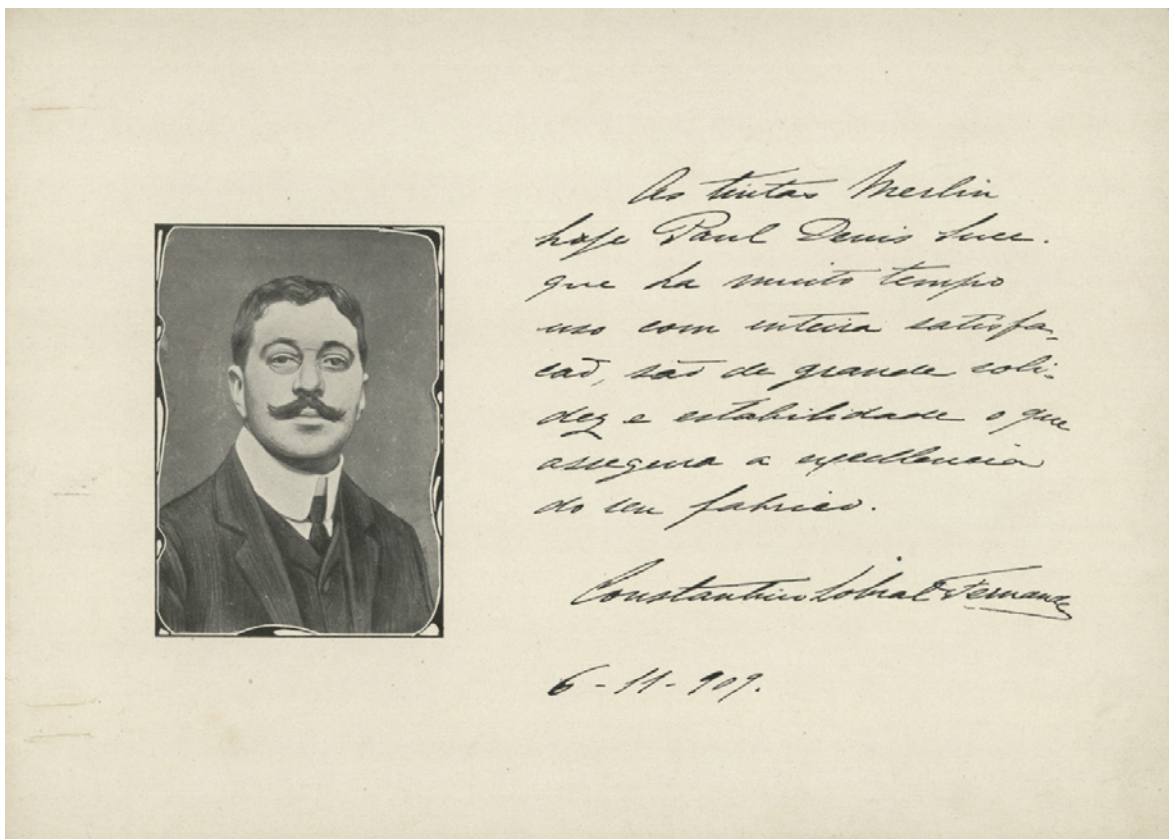 As tintas Merlin
hoje Paul Denis Succ.
que ha muito tempo
uso com inteira satisfa-
caõ, saõ de grande soli-
dez e estabilidade o que
assegura a excellencia
do seu fabrico.
Constantino Sobral Fernandes
6-11-909.